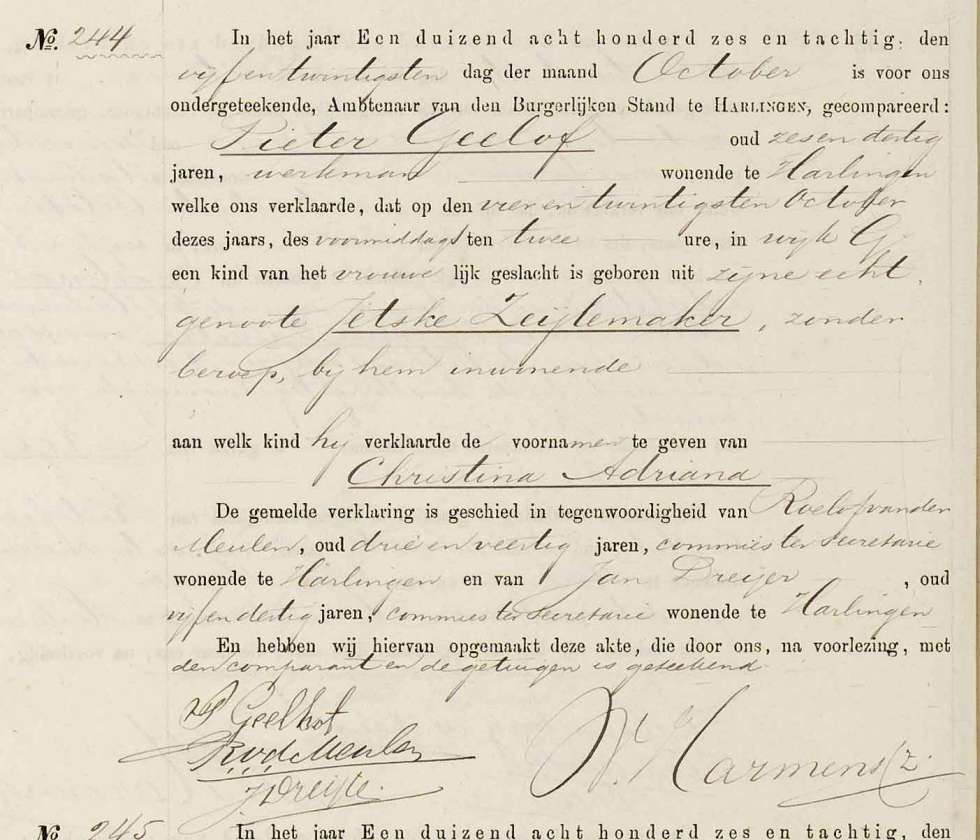 No. 244 In het jaar Een duizend acht honderd zes en tachtig, den
vijf en twintigsten dag der maand October is voor ons
ondergeteekende, Ambtenaar van den Burgerlijken Stand te HARLINGEN, gecompareerd:
Pieter Geelof oud zes en dertig
jaren, werkman wonende te Harlingen
welke ons verklaarde, dat op den vier en twintigsten October
dezes jaars, des voormiddags ten twee ure, in wijk G,
een kind van het vrouwe lijk geslacht is geboren uit zijne echt
genoote Jetske Zeijlemaker, zonder
beroep, bij hem inwonende
aan welk kind hij verklaarde de voornamen te geven van
Christina Adriana
De gemelde verklaring is geschied in tegenwoordigheid van Roelof van der
Meulen, oud drie en veertig jaren, commies ter secretarie
wonende te Harlingen en van Jan Dreijer, oud
vijf en dertig jaren, commies ter secretarie wonende te Harlingen
En hebben wij hiervan opgemaakt deze akte, die door ons, na voorlezing, met
den comparant en de getuigen is geteekend.
P Geelhof
R v d Meulen
J Dreijer. Harmens Z.
No 245 In het jaar Een duizend acht honderd zes en tachtig, den